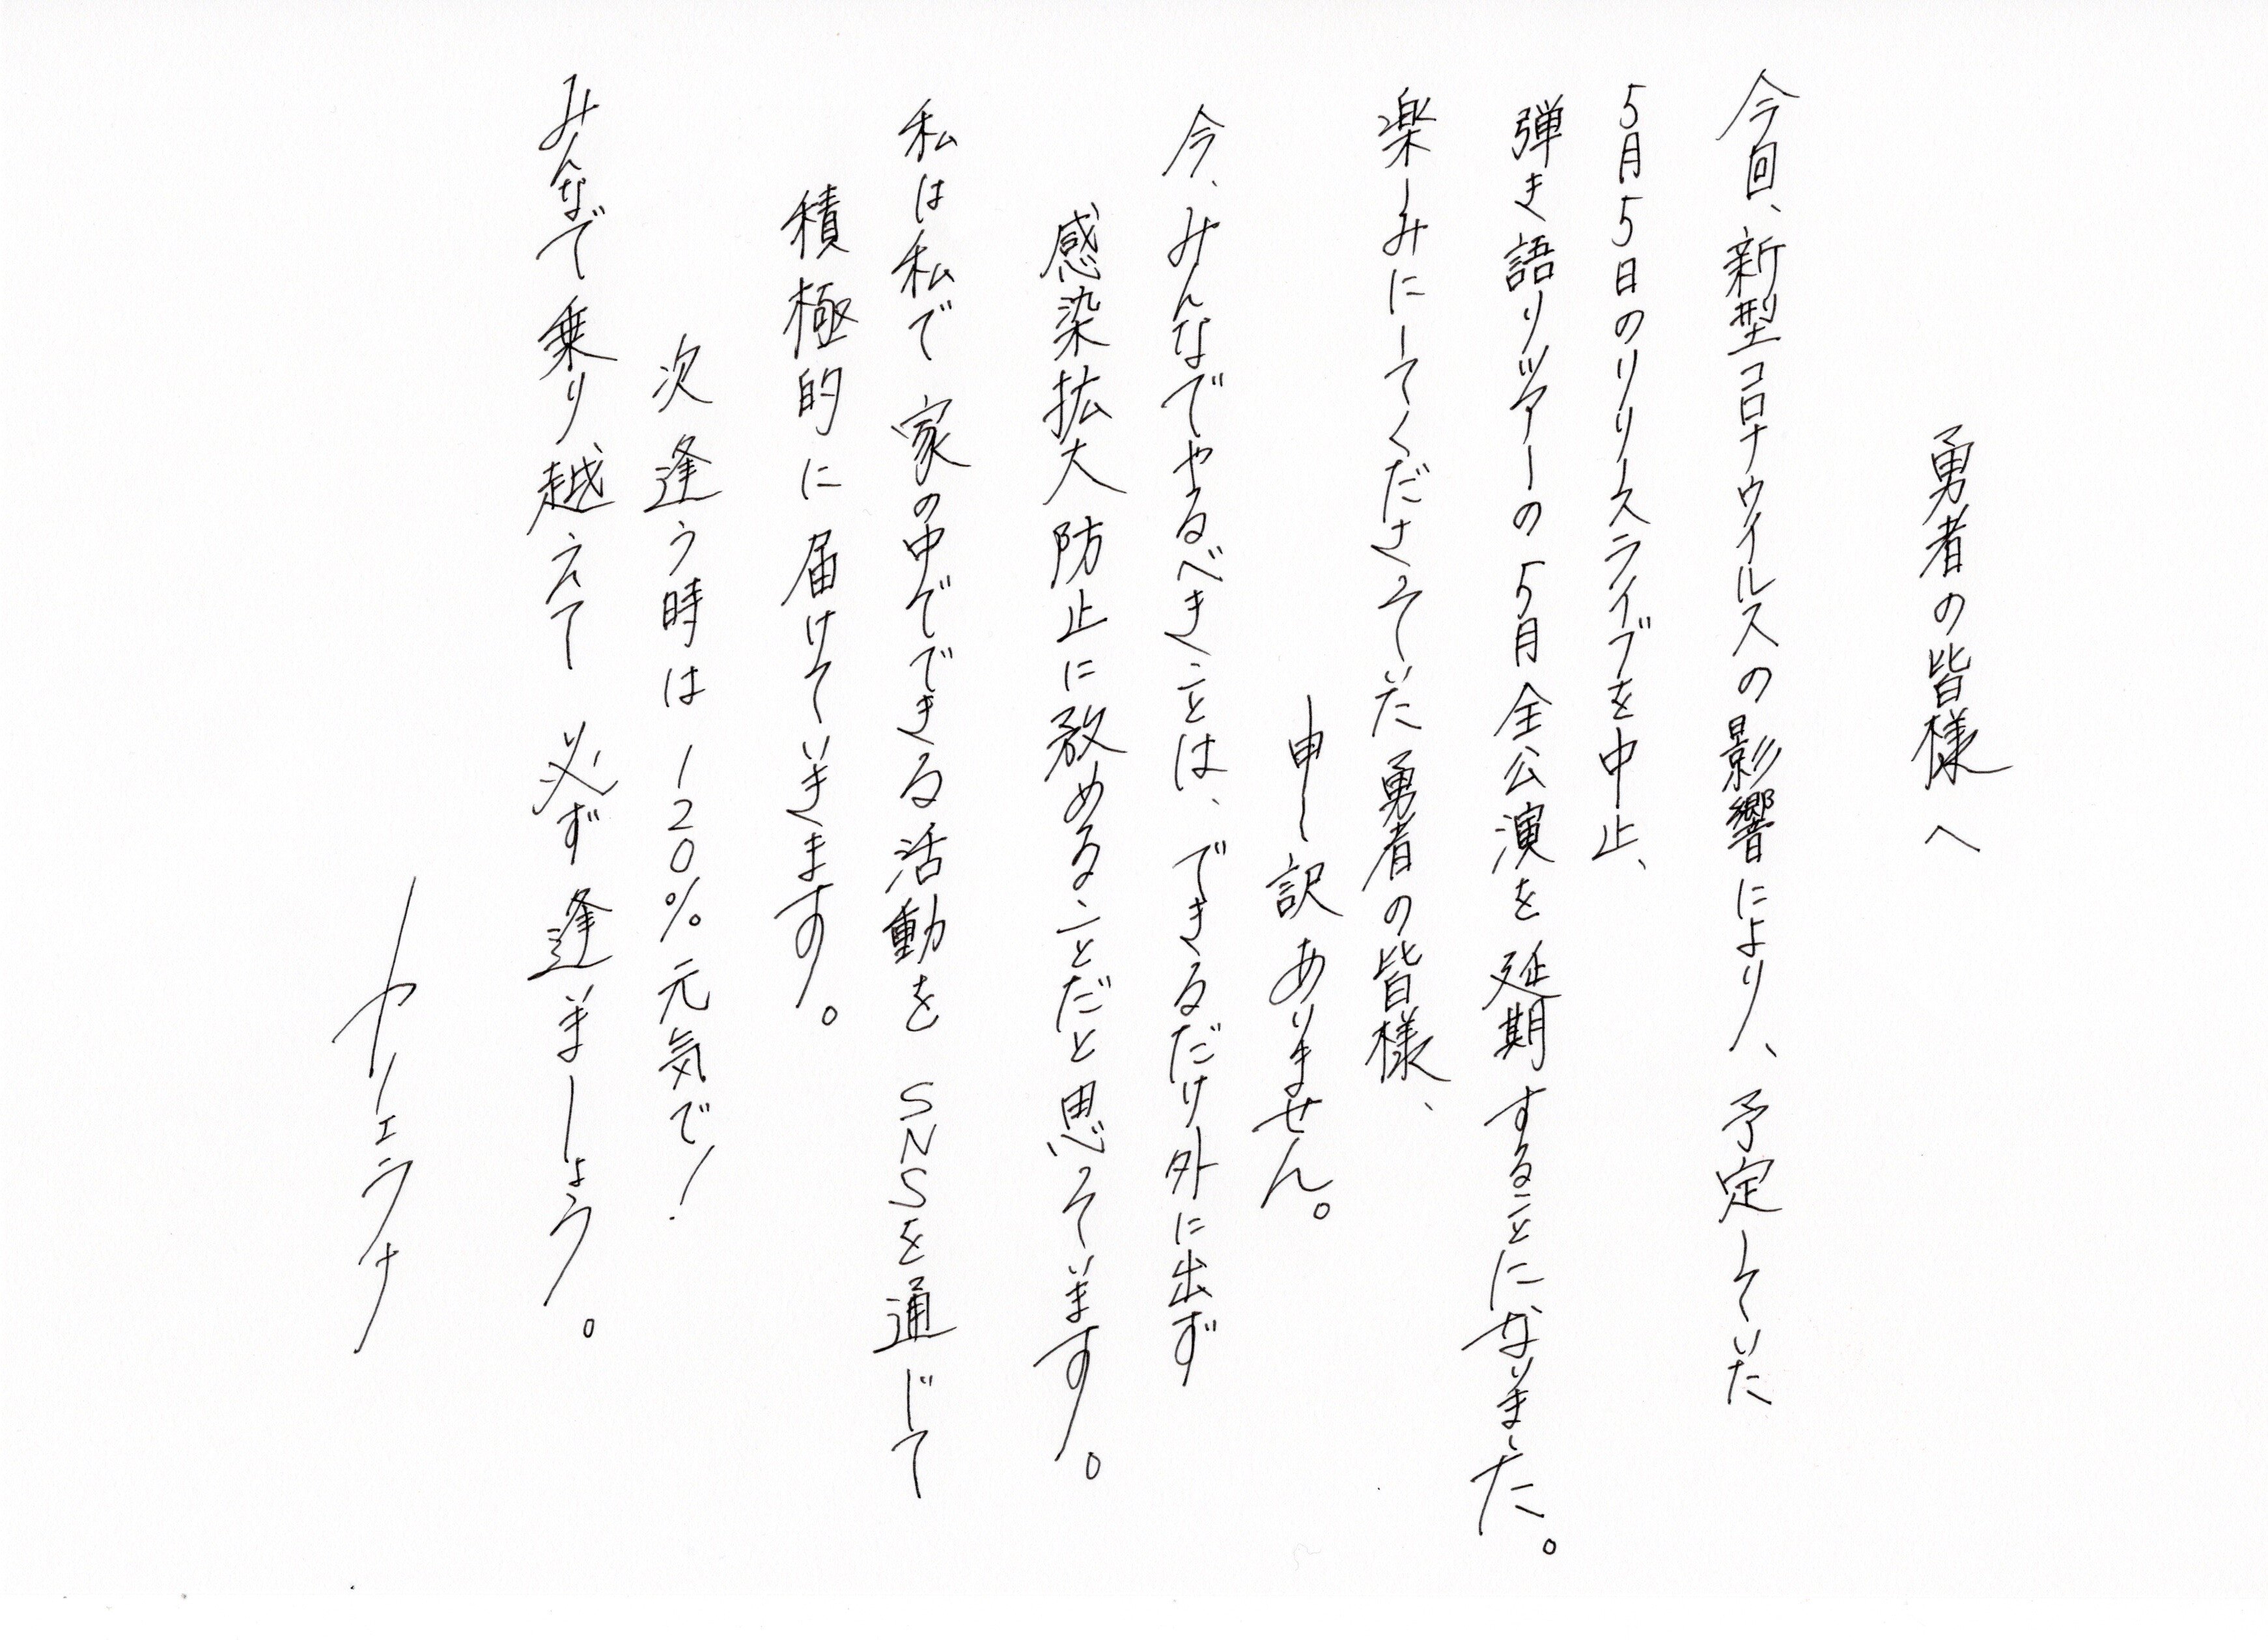 勇者の皆様へ
今回、新型コロナウイルスの影響により、予定していた
5月5日のリリースライブを中止、
弾き語りツアーの5月全公演を延期することになりました。
楽しみにしてくださっていた勇者の皆様、
申し訳ありません。
今、みんなでやるべきことは、できるだけ外に出ず
感染拡大防止に務めることだと思っています。
私は私で家の中でできる活動をSNSを通じて
積極的に届けていきます。
次逢う時は120%元気で!
みんなで乗り越えて必ず逢いましょう。